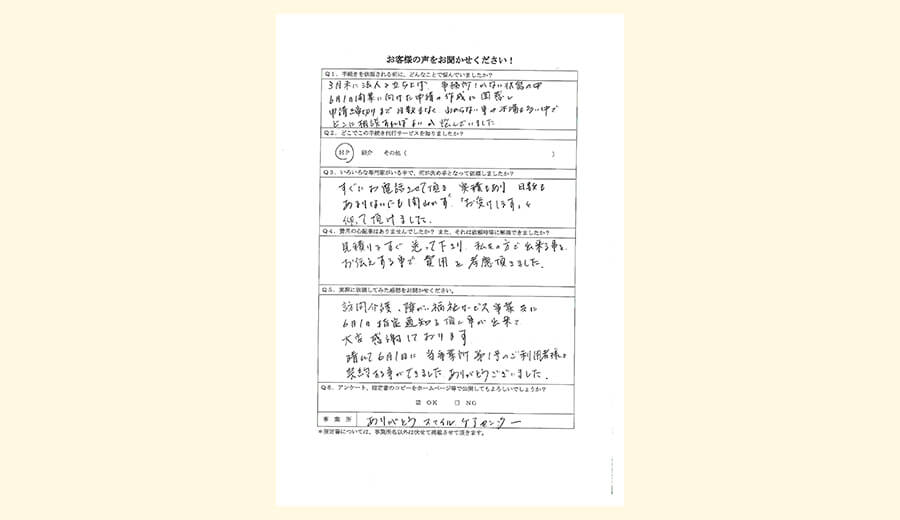 お客様の声をお聞かせください!
Q1.手続きを依頼される前に、どんなことで悩んでいましたか?
3月末に法人を立ち上げ 事務所もない状態の中
6月1日開業に向けた申請の作成に困惑し
申請締切りまで日数もなく わからない事の不備も多い中で
どこに相談すればよいか悩んでいました
Q2.どこでこの手続き代行サービスを知りましたか?
HP 紹介 その他( )
Q3.いろいろな専門家がいる中で、何が決め手となって依頼しましたか?
すぐにお電話させて頂き 実績もあり 日数も
あまりないにも関わらず、「お受けします」と
仰って頂けました。
Q4.費用の心配事はありませんでしたか?また、それは依頼時等に解消できましたか?
見積りもすぐ送って下さり 私共の方で出来る事を
お伝えする事で費用を考慮頂きました。
Q5.実際に依頼してみた感想をお聞かせください。
訪問介護、障がい福祉サービス事業共に
6月1日指定通知を頂く事が出来て
大変感謝しております
晴れて6月1日に当事業所第1号のご利用者様と
契約する事ができました ありがとうございました。
Q6.アンケート、指定書のコピーをホームページ等で公開してもよろしいでしょうか?
☑ OK □ NG
事業所 ありがとうスマイルケアセンター
*指定書については、事業所名以外は伏せて掲載させて頂きます。